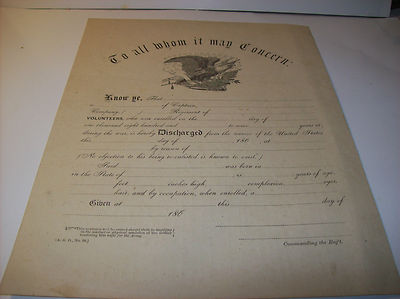 To all whom it may Concern:
Know ye, That
of Captain
Company, ( ) Regiment of
VOLUNTEERS, who was enrolled on the day of
one thousand eight hundred and to serve years or
during the war, is hereby Discharged from the service of the United States
this day of 186 at
by reason of
(No objection to his being re-enlisted is known to exist.)
Said was born in
in the State of is years of age,
feet inches high, complexion, eyes,
hair, and by occupation, when enrolled, a
Given at this day of
186
Commanding the Reg't.